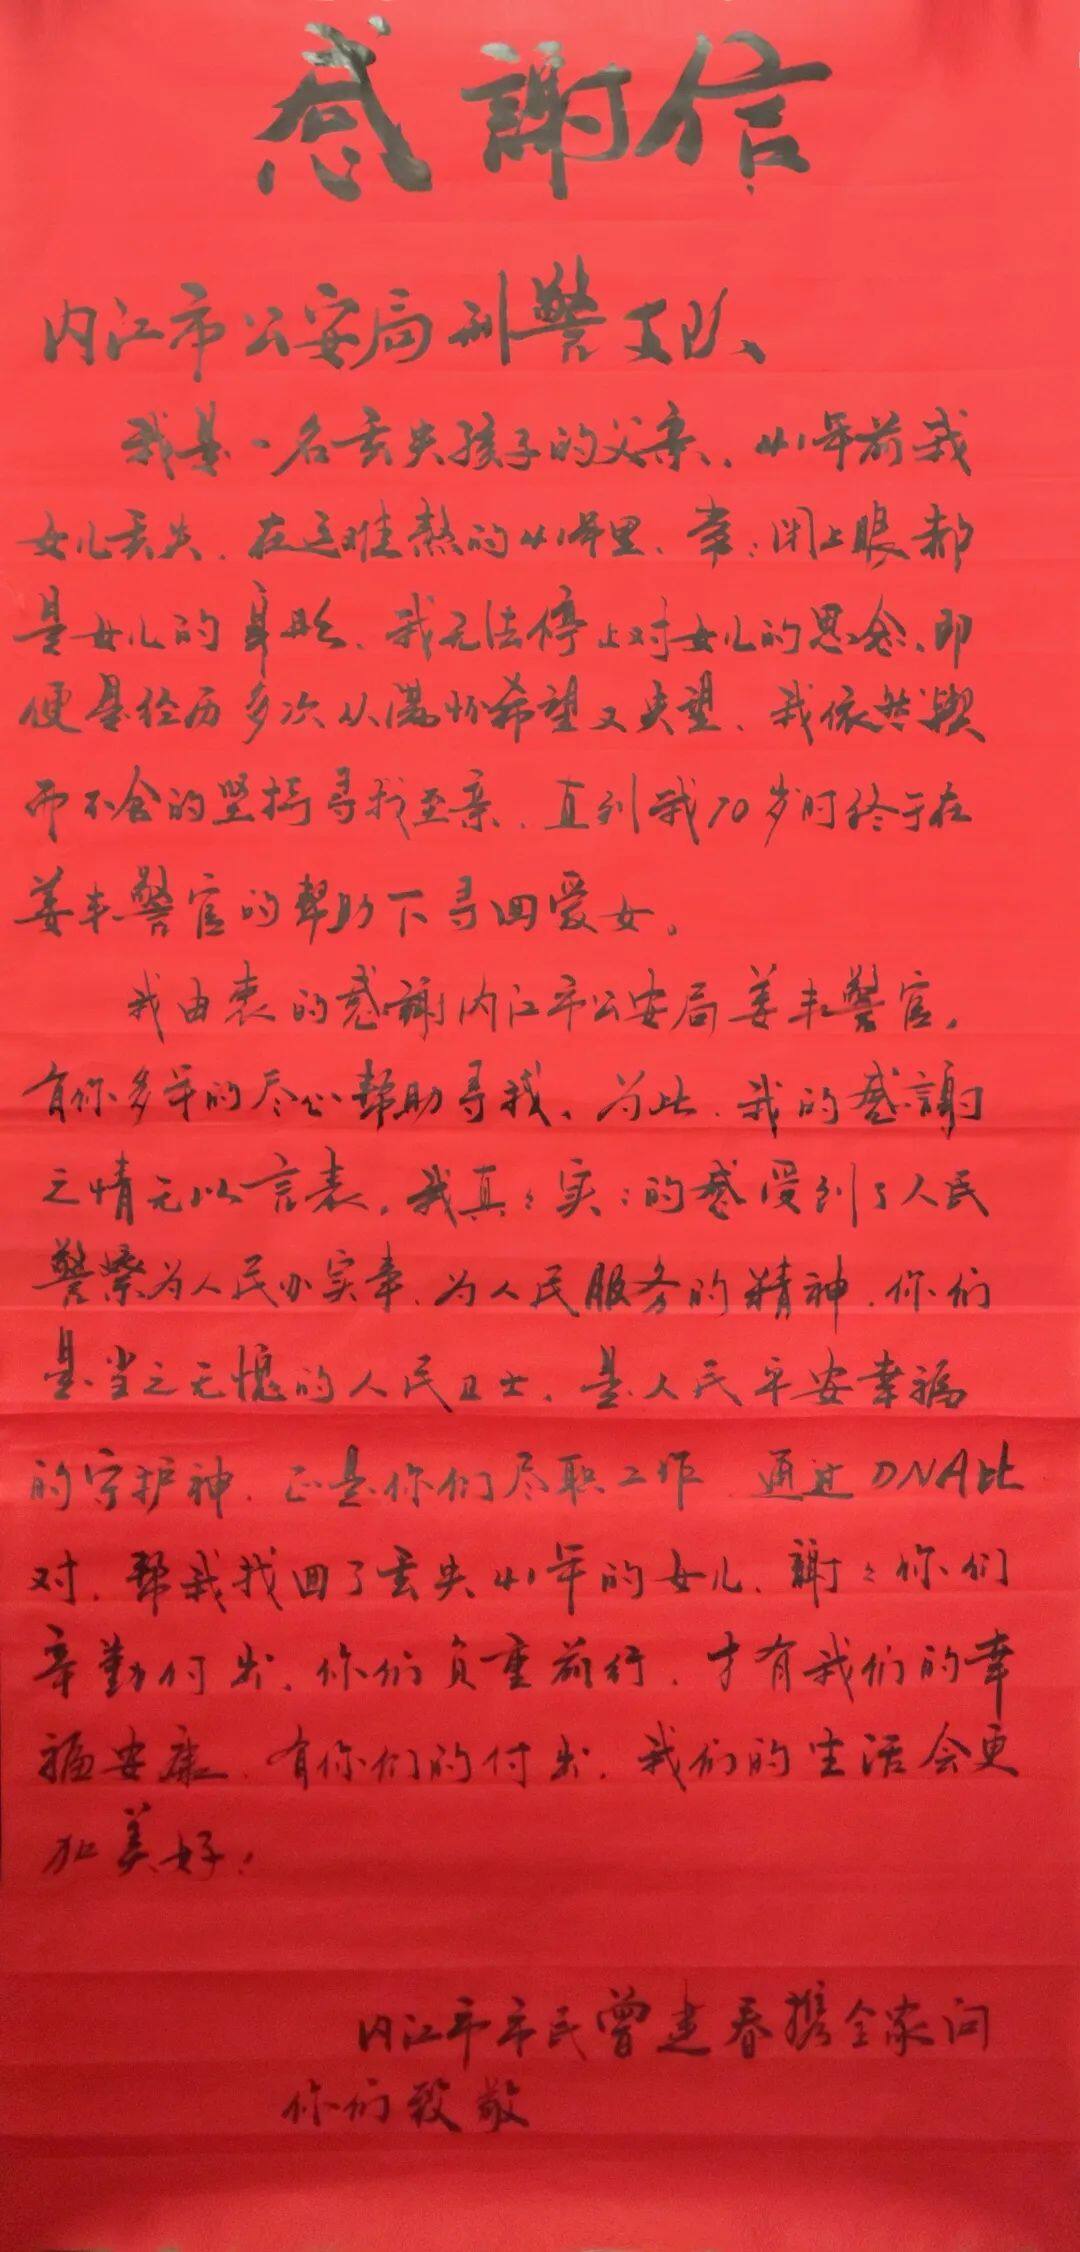 感謝信
内江市公安局刑警支队、
我是一名丢失孩子的父亲、41年前我
女儿丢失、在这难熬的41年里、常:闭上眼都
是女儿的身影、我无法停止对女儿的思念、即
便是经历多次从满怀希望又失望、我依然锲
而不舍的坚持寻找至亲、直到我70岁时终于在
姜丰警官的帮助下寻回爱女。
我由衷的感謝内江市公安局姜丰警官。
有你多年的尽心帮助寻找、为此、我的感謝
之情无以言表。我真:实:的感受到了人民
警察为人民办实事、为人民服务的精神、你们
是当之无愧的人民卫士、是人民平安幸福
的守护神、正是你们尽职工作、通过DNA比
对、帮我找回了丢失41年的女儿、謝:你们
辛勤付出、你们负重前行、才有我们的幸
福安康、有你们的付出、我们的生活会更
加美好!
内江市市民曾建春携全家向
你们致敬